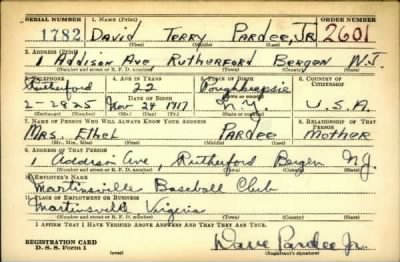 SERIAL NUMBER 1. NAME (Print) ORDER NUMBER
1782 DAVID TERRY PARDEE, JR 2601
(First) (Middle) (Last)
2. ADDRESS (Print)
1 ADDISON AVE, RUTHERFORD BERGEN N.J.
(Number and street or R. F. D. number) (Town) (County) (State)
3. TELEPHONE 4. AGE IN YEARS 5. PLACE OF BIRTH 6. COUNTRY OF CITIZENSHIP
Rutherford 22 Poughkeepsie
DATE OF BIRTH
2-2925 Nov 24 1917 N.Y. U.S.A.
(Exchange) (Number) (Mo.) (Day) (Yr.) (State or country)
7. NAME OF PERSON WHO WILL ALWAYS KNOW YOUR ADDRESS 8. RELATIONSHIP OF THAT PERSON
MRS. Ethel PARDEE MOTHER
(Mr., Mrs., Miss) (First) (Middle) (Last)
9. ADDRESS OF THAT PERSON
1 Addison Ave, Rutherford Bergen N.J.
(Number and street or R. F. D. number) (Town) (County) (State)
10. EMPLOYER'S NAME
Martinsville Baseball Club
11. PLACE OF EMPLOYMENT OR BUSINESS
Martinsville Virginia
(Number and street or R. F. D. number) (Town) (County) (State)
I AFFIRM THAT I HAVE VERIFIED ABOVE ANSWERS AND THAT THEY ARE TRUE.
REGISTRATION CARD Dave Pardee Jr.
D. S. S. Form 1 (over) (Registrant's signature)